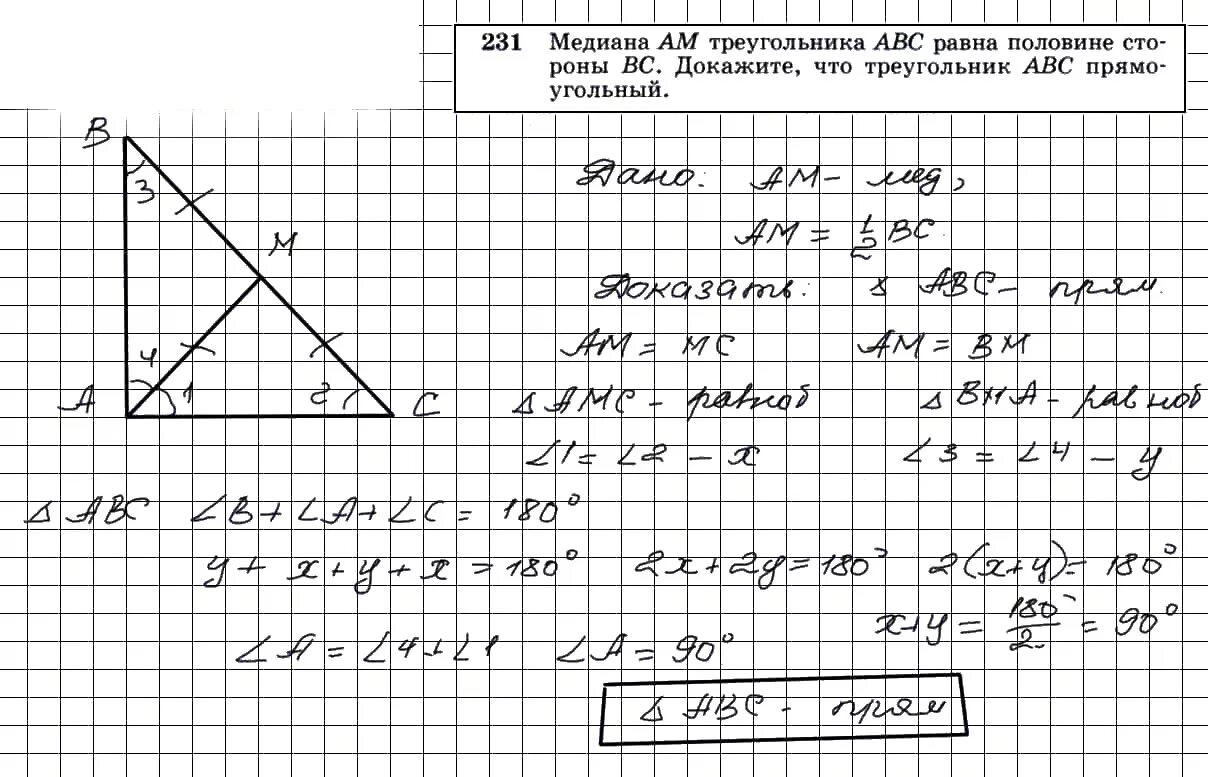 231 Медиана AM треугольника ABC равна половине сто-
роны BC. Докажите, что треугольник ABC прямо-
угольный.
B
3
M
4
A
1
2
C
Дано: AM - мед,
AM = 1/2 BC
Доказать: Δ ABC - прям.
AM = MC AM = BM
Δ AMC - равноб Δ BMA - равноб
∠1 = ∠2 - x ∠3 = ∠4 - y
Δ ABC ∠B + ∠A + ∠C = 180°
y + x + y + x = 180° 2x + 2y = 180° 2(x+y) = 180°
x+y = 180°/2 = 90°
∠A = ∠4 + ∠1 ∠A = 90°
Δ ABC - прям